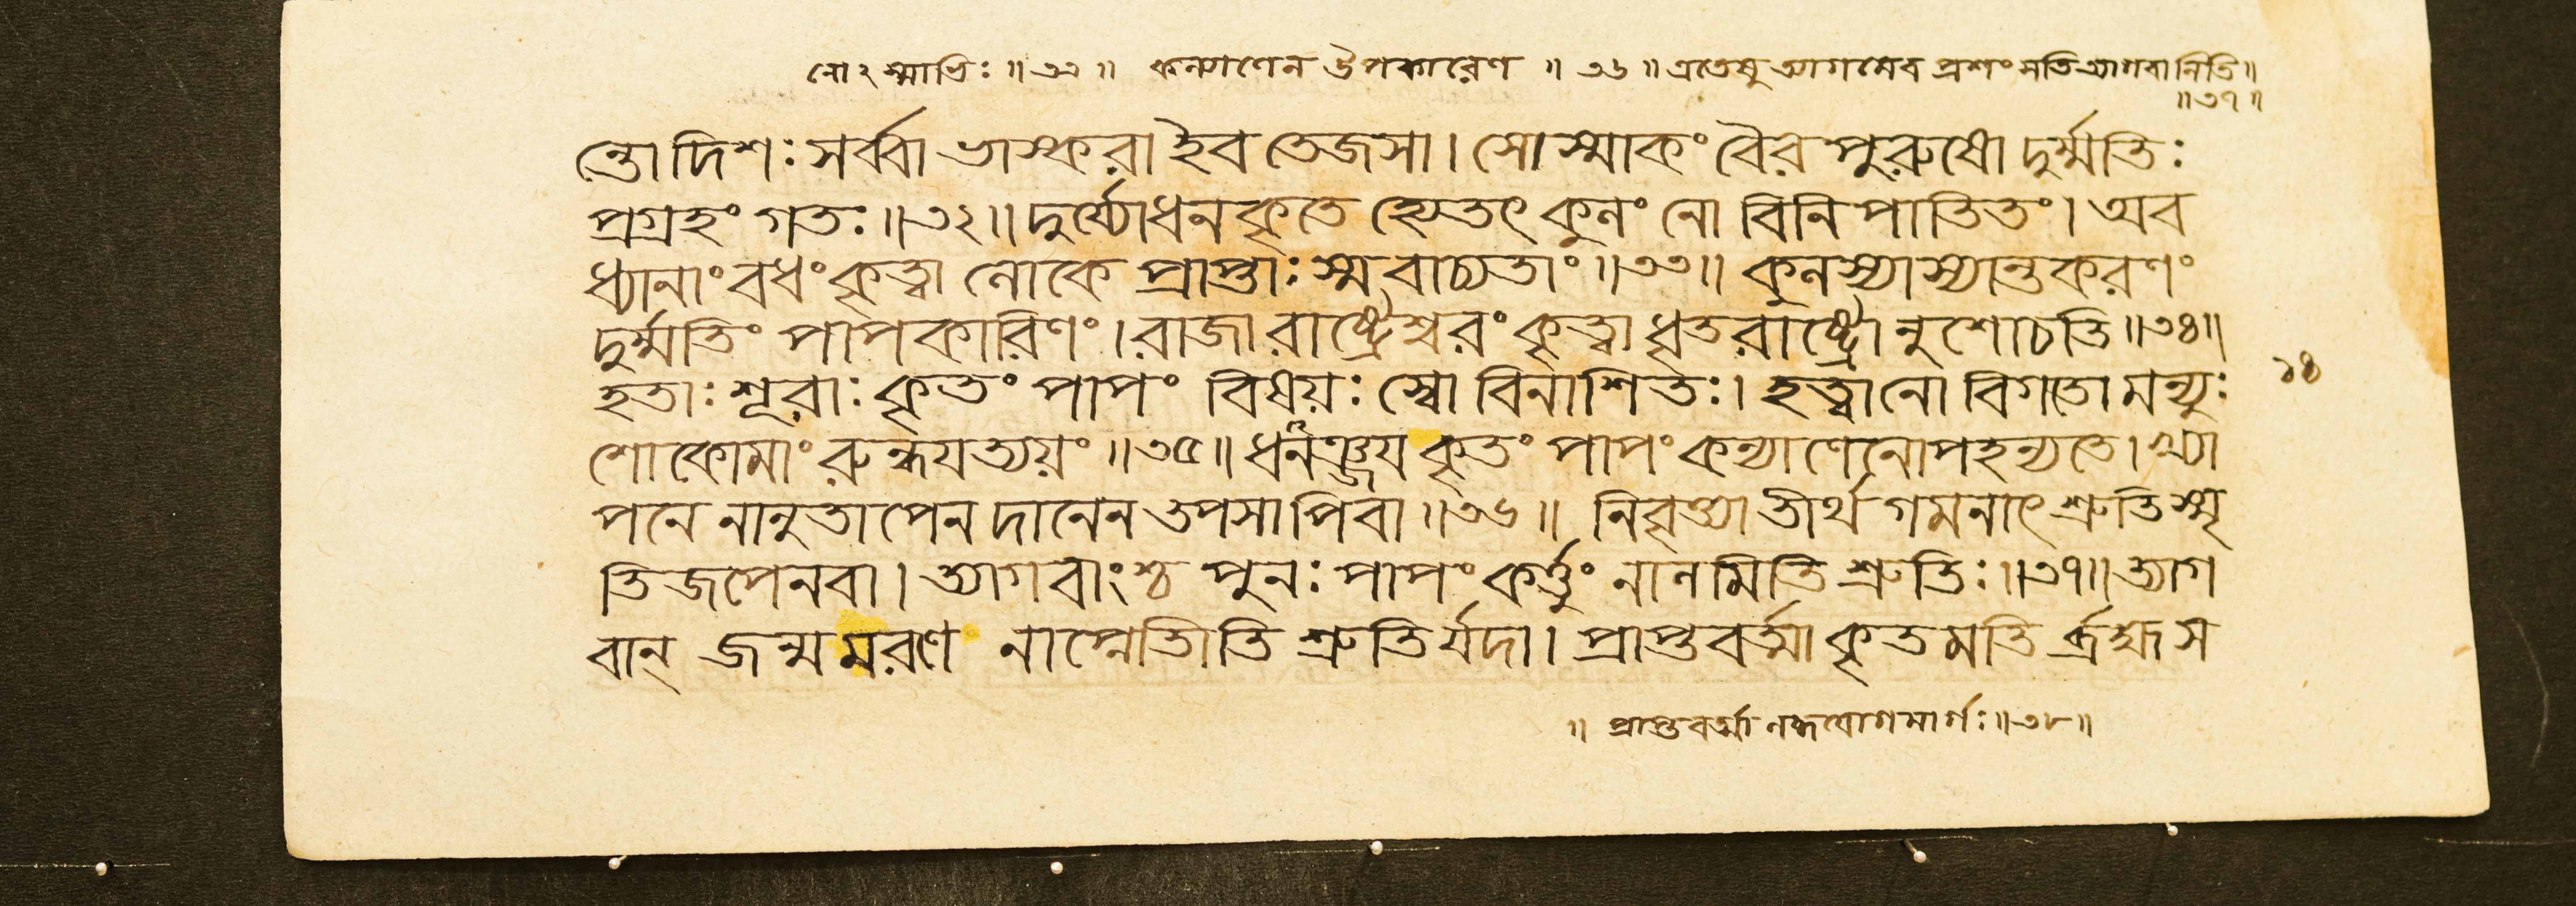 নোঽস্মাভিঃ ॥৩৩॥ কল্যাণেন উপকারেণ ॥৩৬॥ এতেষু ত্যাগমেব প্রশংসতি ত্যাগবানিতি॥
॥৩৭॥
ন্তো দিশঃ সর্ব্বা ভাস্করা ইব তেজসা। সোস্মাকং বৈর পুরুষো দুর্ম্মতিঃ
প্রগ্রহং গতঃ॥৩২॥ দুর্য্যোধনকৃতে হ্যেতৎ কুলং নো বিনিপাতিতং। অব
ধ্যানাং বধং কৃত্বা লোকে প্রাপ্তাঃ স্ম বাচ্যতাং॥৩৩॥ কুলস্যাস্যান্তকরণং
দুর্ম্মতিং পাপকারিণং। রাজা রাষ্ট্রেশ্বরং কৃত্বা ধৃতরাষ্ট্রোনুশোচতি॥৩৪॥
হতাঃ শূরাঃ কৃতং পাপং বিষয়ঃ স্বো বিনাশিতঃ। হত্বা নো বিগতো মন্যুঃ
শোকোমাং রুন্ধযত্যয়ং॥৩৫॥ ধনঞ্জয কৃতং পাপং কল্যাণেনোপহন্যতে। খ্যা
পনে নানুতাপেন দানেন তপসাপিবা॥৩৬॥ নিবৃত্ত্যা তীর্থ গমনাৎ শ্রুতিস্মৃ
তি জপেনবা। ত্যাগবাংশ্চ পুনঃ পাপং কর্ত্তুং নালমিতি শ্রুতিঃ॥৩৭॥ ত্যাগ
বান্ জন্মমরণে নাপ্নোতীতি শ্রুতির্যদা। প্রাপ্তবর্ত্মা কৃতমতি র্ব্রহ্ম স
১৪
॥ প্রাপ্তবর্ত্মা লব্ধযোগমার্গঃ॥৩৮॥